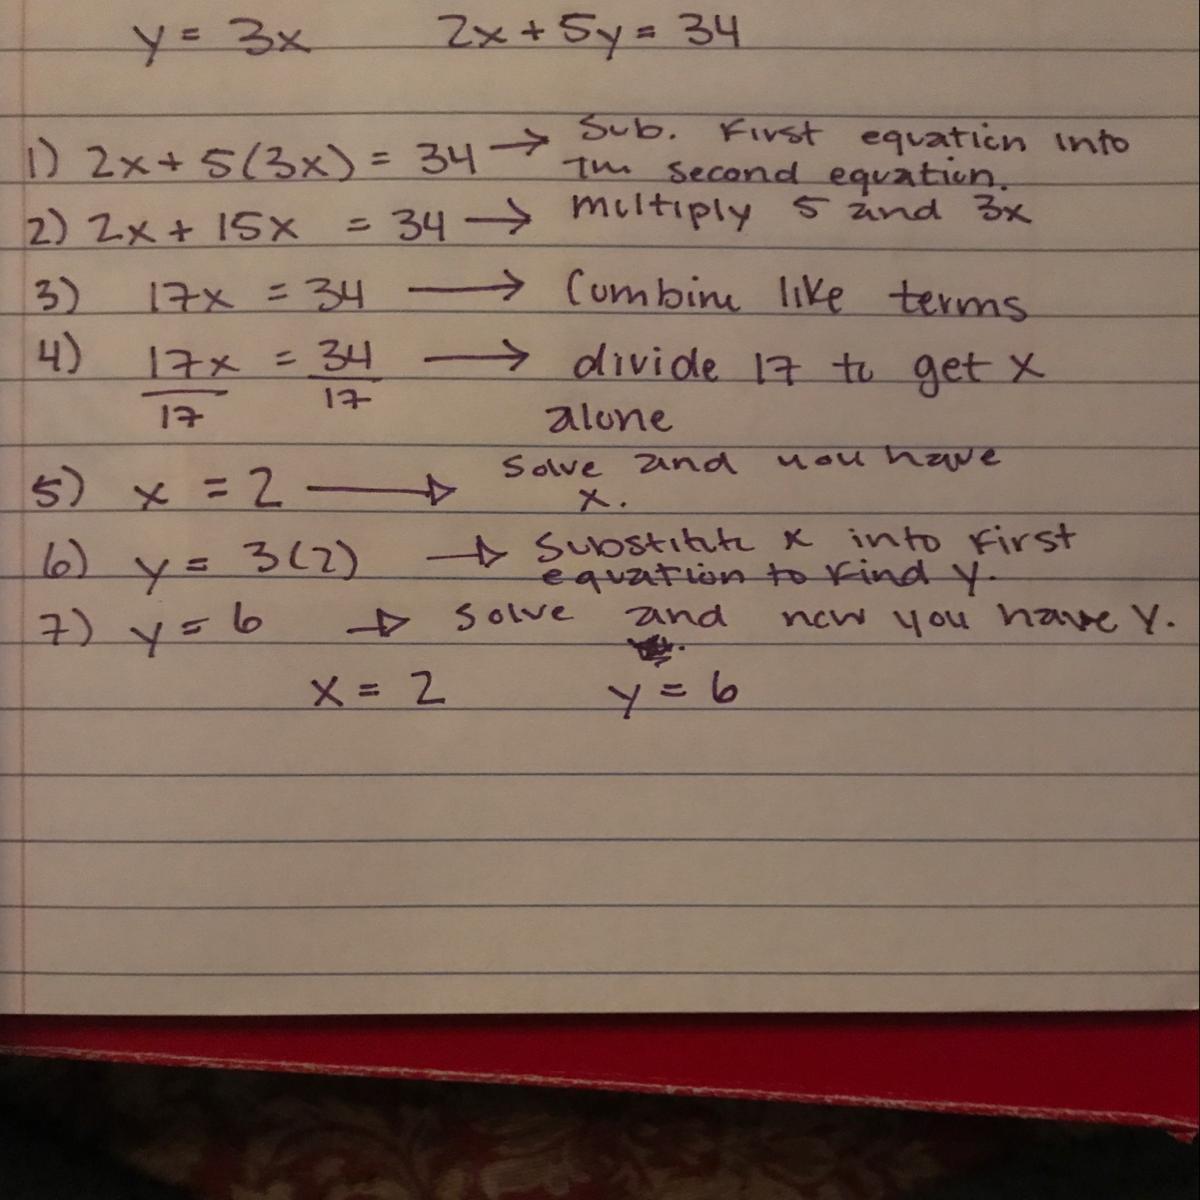 y = 3x 2x + 5y = 34
1) 2x + 5(3x) = 34 → Sub. First equation into
The second equation.
2) 2x + 15x = 34 → multiply 5 and 3x
3) 17x = 34 → Combine like terms
4) 17x = 34 → divide 17 to get x
17 17 alone
5) x = 2 → Solve and you have
x.
6) y = 3(2) → Substitute x into First
equation to Find y.
7) y = 6 → Solve and now you have y.
x = 2 y = 6